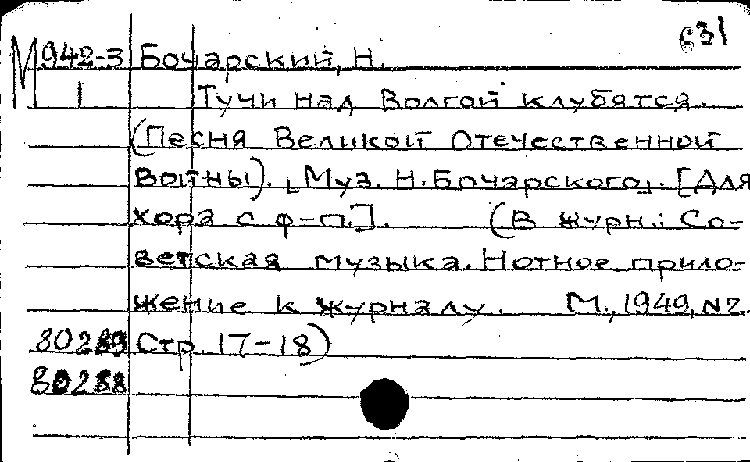 631
М942-3 Бочарский, Н.
1 Тучи над Волгой клубятся.
(Песня Великой Отечественной
Войны). Муз. Н. Бочарского. [Для
хора с ф-п.]. (В журн.: Со-
ветская музыка. Нотное прило-
жение к журналу. М., 1949, №2.
80289 Стр. 17-18)
80288